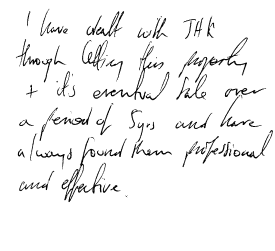 I have dealt with JHK
through letting this property
+ it's eventual sale over
a period of 5yrs and have
always found them professional
and effective.